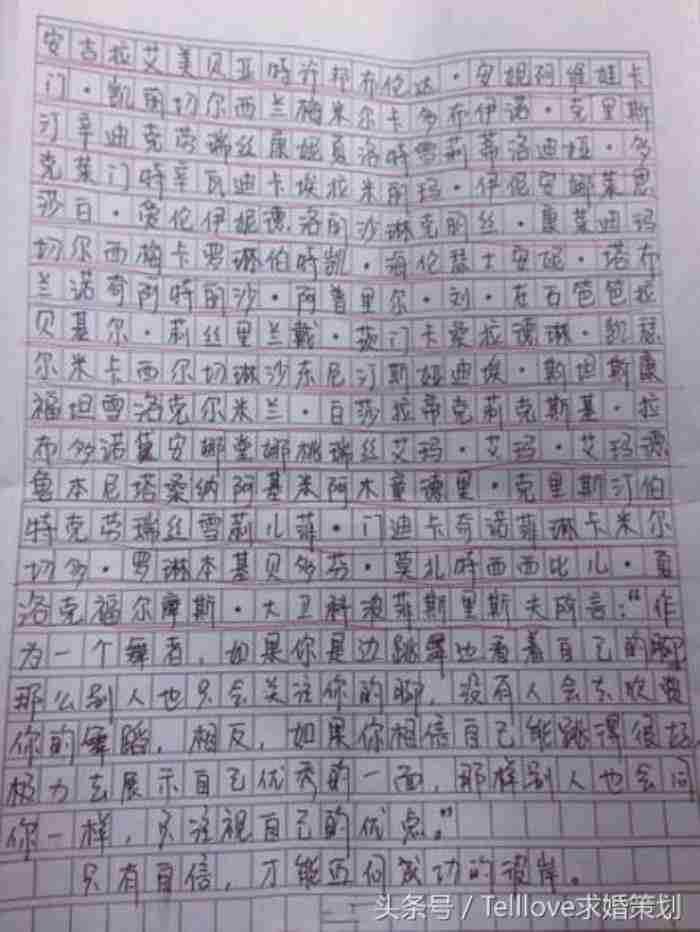 安吉拉艾美贝亚特许邦布伦达·安妮阿维娃卡
门·凯茵切尔西兰梅米尔卡多布伊诺·克里斯
汀辛迪克劳瑞丝康妮夏洛特雪莉蒂洛迪娅·多
克莱门特辛瓦迪卡埃拉米丽玛·伊尼安娜莱思
莎白·爱伦伊妮德洛丽沙琳克丽丝·康莱迪玛
切尔西梅卡罗琳伯特凯·海伦瑟士安妮·塔布
兰诺奇阿特丽沙·阿普里尔·刘·左右笆笆拉
贝基尔·莉丝里兰戴·茨门卡桑拉德琳·凯瑟
尔米卡西尔切琳沙东尼汀斯娅迪埃·斯坦斯康
福坦雪洛克尔米兰·白莎拉蒂克莉克斯基·拉
布多诺 安娜堂娜桃瑞丝艾玛·艾玛·艾玛德
鲁本尼塔桑纳阿基米阿木童德里·克里斯汀伯
特克劳瑞丝雪莉儿菲·门迪卡奇诺菲琳卡米尔
切多·罗琳本基贝多芬·莫扎特西西比儿·夏
洛克福尔摩斯·大卫科波菲斯里斯夫所言:“作
为一个舞者,如果你是边跳舞边看着自己的脚
那么别人也只会关注你的脚,没有人会去欣赏
你的舞蹈,相反,如果你相信自己能跳得很好,
极力去展示自己优秀的一面,那样别人也会同
你一样,只注视自己的优点。”
只有自信,才能迈向成功的彼岸。
头条号 / Telllove求婚策划